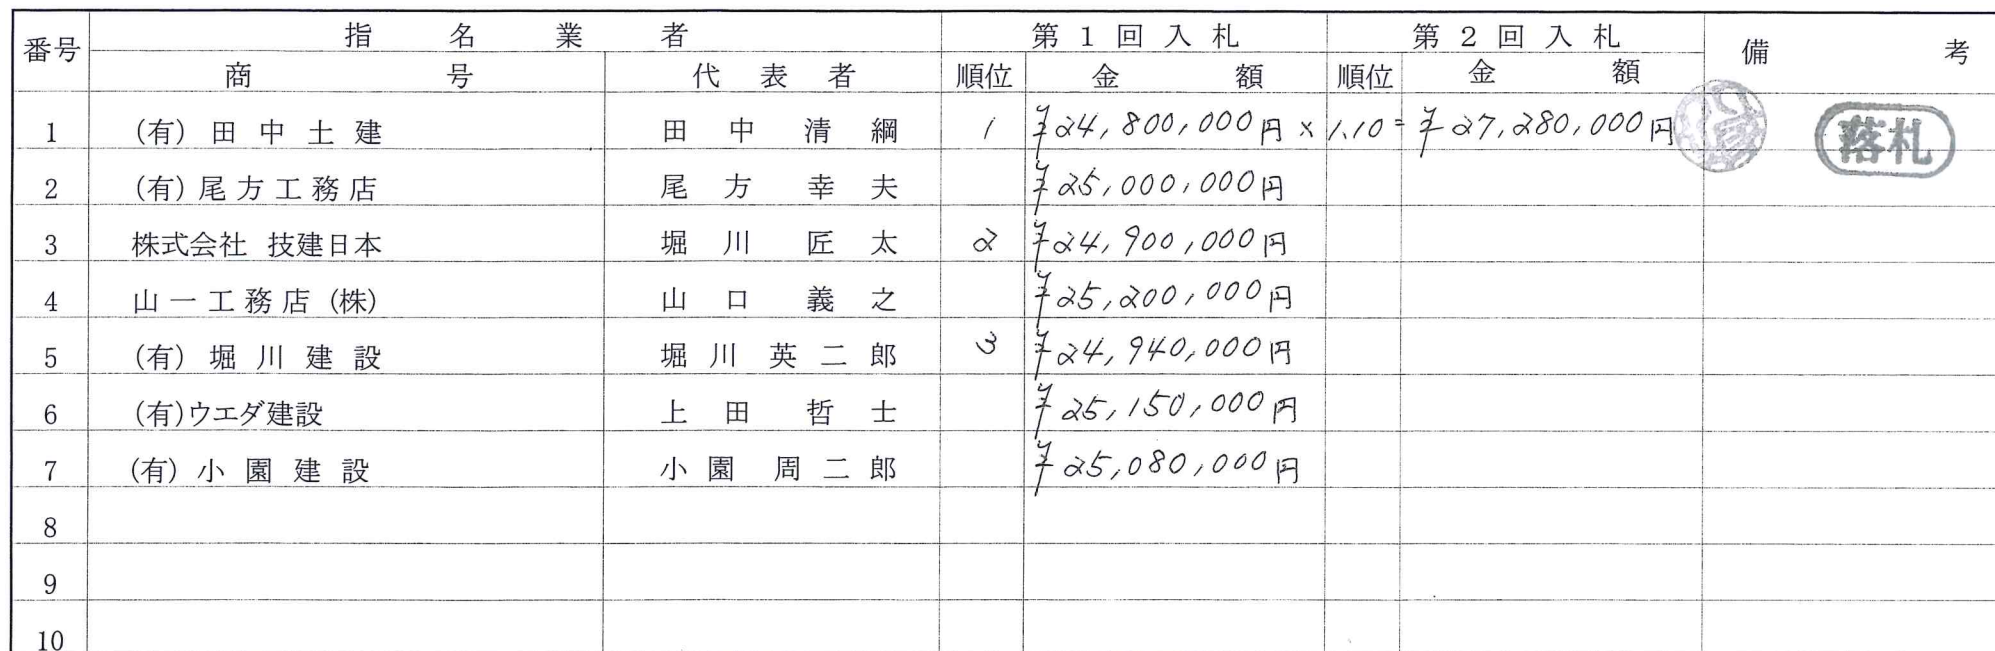 番号 指名業者 第1回入札 第2回入札 備考
商号 代表者 順位 金額 順位 金額
1 (有) 田中土建 田中清綱 1 ¥24,800,000円 × 1.10 = ¥27,280,000円 落札
2 (有) 尾方工務店 尾方幸夫 ¥25,000,000円
3 株式会社 技建日本 堀川匠太 2 ¥24,900,000円
4 山一工務店 (株) 山口義之 ¥25,200,000円
5 (有) 堀川建設 堀川英二郎 3 ¥24,940,000円
6 (有)ウエダ建設 上田哲士 ¥25,150,000円
7 (有) 小園建設 小園周二郎 ¥25,080,000円
8
9
10